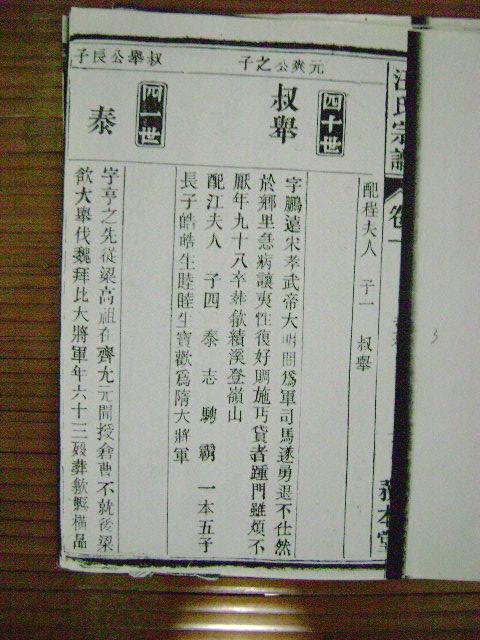 汪氏宗譜
卷一
配程夫人 子一 叔舉
元爽公之子
四十世
叔舉
字鵬遠宋孝武帝大明間爲軍司馬遂勇退不仕然
於鄉里急病讓夷性復好賙施丐貸者踵門雖煩不
厭年九十八卒葬歙績溪登嶺山
配江夫人 子四 泰 志 騁 霸 一本五子
長子皓皓生睦睦生寶歡爲隋大將軍
叔舉公長子
四一世
泰
字亨之先從梁高祖在齊九元間授倉曹不就後梁
欲大舉伐魏拜比大將軍年六十三歿葬歙縣橫品